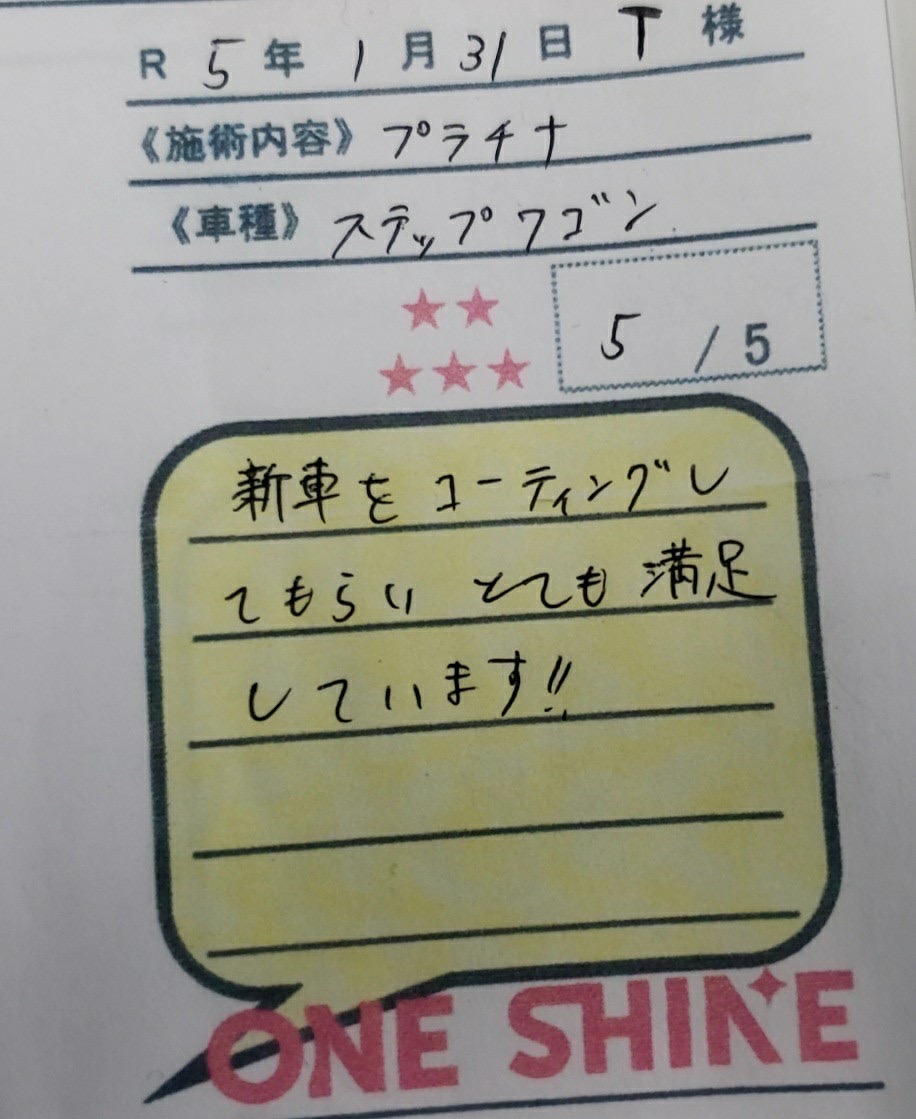 R 5年 1月31日 T 様
《施術内容》プラチナ
《車種》ステップワゴン
★★
★★★
5 / 5
新車をコーティングし
てもらい とても満足
しています!!
ONE SHINE